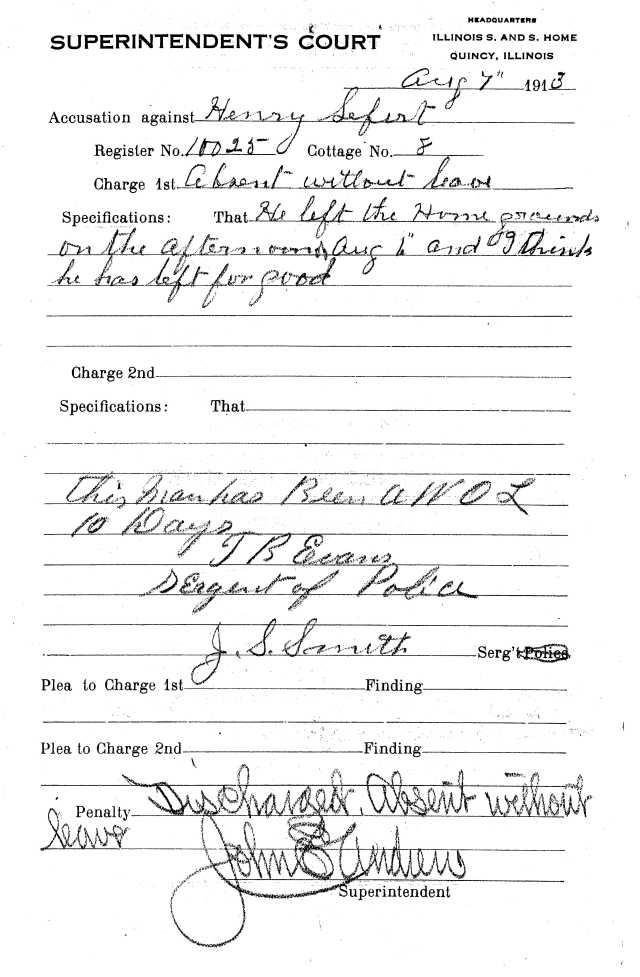 HEADQUARTERS
SUPERINTENDENT'S COURT
ILLINOIS S. AND S. HOME
QUINCY, ILLINOIS
Aug 7" 1913
Accusation against Henry Sefert
Register No. 10025 Cottage No. 8
Charge 1st Absent without leave
Specifications: That He left the Home grounds
on the afternoon Aug 6" and I think
he has left for good
Charge 2nd
Specifications: That
This Man has Been A W O L
10 Days
T B Evans
Sergent of Police
J. S. Smith Serg't Police
Plea to Charge 1st Finding
Plea to Charge 2nd Finding
Penalty Discharged. Absent without
leave
John E Andrew
Superintendent